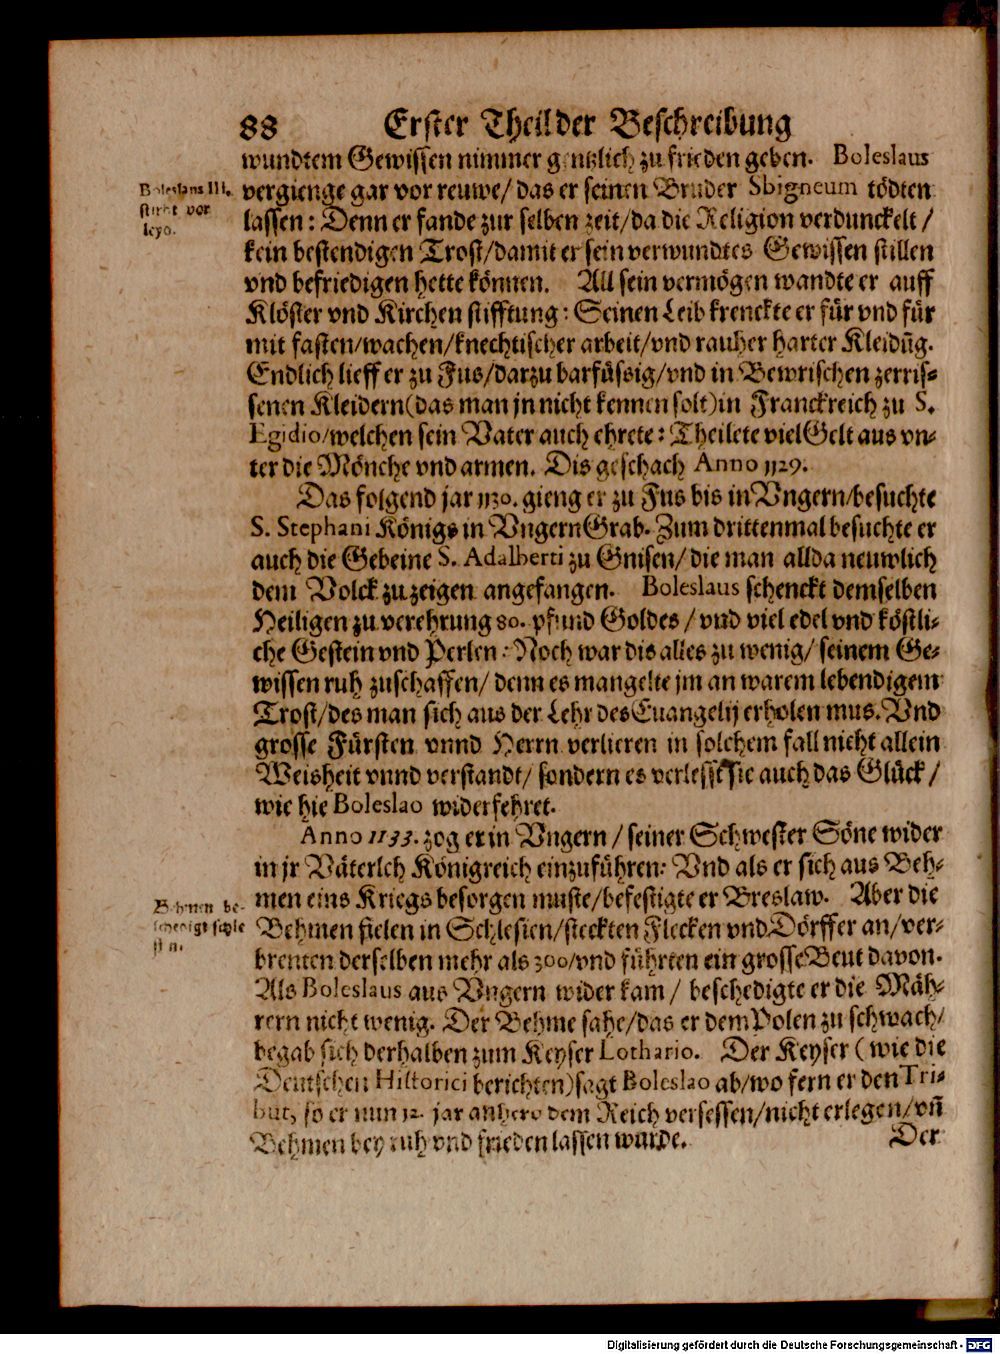 88 Erster Theil der Beschreibung
wundtem Gewissen nimmer gentzlich zu frieden geben. Boleslaus
Boleslaus III.
stirbt vor
leyd.
vergienge gar vor reuwe/ das er seinen Bruder Sbigneum tödten
lassen: Denn er fande zur selben zeit/da die Religion verdunckelt/
kein bestendigen Trost/damit er sein verwundtes Gewissen stillen
vnd befriedigen hette können. All sein vermögen wandte er auff
Klöster vnd Kirchen stifftung: Seinen Leib krenckte er für vnd für
mit fasten/wachen/knechtischer arbeit/vnd rauher harter Kleidūg.
Endlich lieff er zu Fus/darzu barfüssig/vnd in Bewrischen zerris-
senen Kleidern(das man jn nicht kennen solt)in Franckreich zu S.
Egidio/welchen sein Vater auch ehrete: Theilete viel Gelt aus vn-
ter die Mönche vnd armen. Dis geschach Anno 1129.
Das folgend jar 1130. gieng er zu Fus bis in Vngern/besuchte
S. Stephani Königs in Vngern Grab. Zum drittenmal besuchte er
auch die Gebeine S. Adalberti zu Gnisen/ die man allda neuwlich
dem Volck zu zeigen angefangen. Boleslaus schenckt demselben
Heiligen zu verehrung 80. pfund Goldes/ vnd viel edel vnd köstli-
che Gestein vnd Perlen: Noch war dis alles zu wenig/ seinem Ge-
wissen ruh zuschaffen/ denn es mangelte jm an warem lebendigem
Trost/des man sich aus der Lehr des Euangelij erholen mus. Vnd
grosse Fürsten vnnd Herrn verlieren in solchem fall nicht allein
Weisheit vnnd verstandt/ sondern es verlesst sie auch das Glück/
wie hie Boleslao widerfehret.
Anno 1133. zog er in Vngern/ seiner Schwester Söne wider
in jr Väterlch Königreich einzuführen: Vnd als er sich aus Beh-
men eins Kriegs besorgen muste/befestigte er Breslaw. Aber die
Behmen be-
schedigt Schle
sien.
Behmen fielen in Schlesien/steckten Flecken vnd Dörffer an/ver-
brenten derselben mehr als 300/vnd führten ein grosse Beut davon.
Als Boleslaus aus Vngern wider kam/ beschedigte er die Mäh-
rern nicht wenig. Der Behme sahe/das er dem Polen zu schwach/
begab sich derhalben zum Keyser Lothario. Der Keyser (wie die
Deutschen Historici berichten)sagt Boleslao ab/wo fern er den Tri-
but, so er nun 12. jar anhero dem Reich versessen/nicht erlegen/vñ
Behmen bey ruh vnd frieden lassen würde.
Der
Digitalisierung gefördert durch die Deutsche Forschungsgemeinschaft - DFG